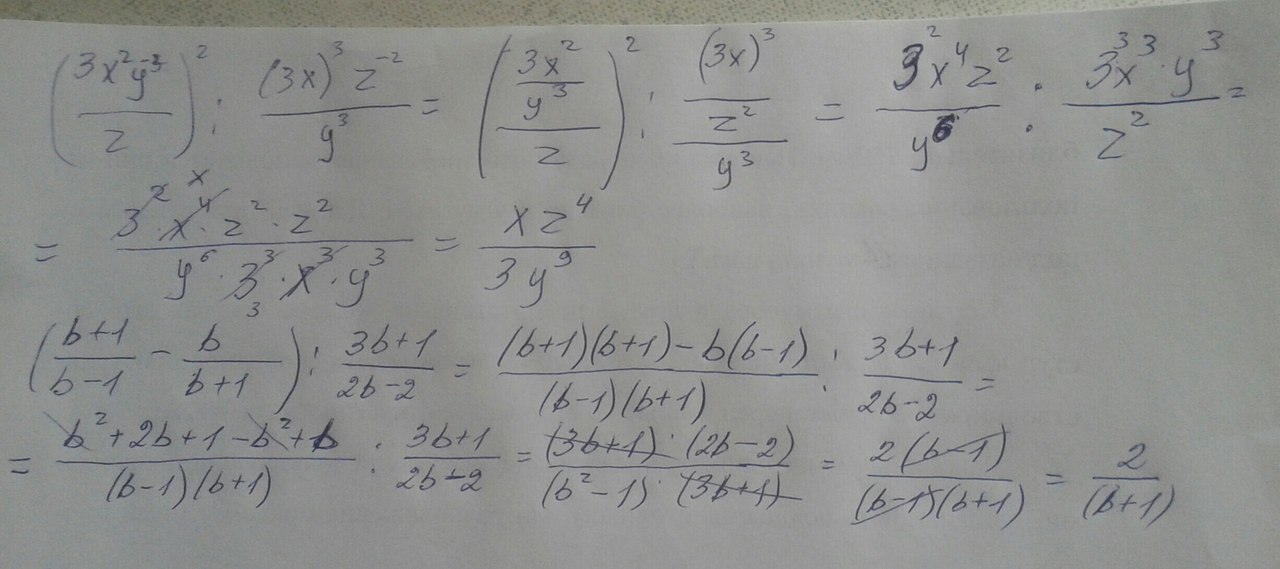 (3x²y⁻³/z)² : (3x)³z⁻²/y³ = ((3x²/y³)/z)² : (((3x)³/z²)/y³) = 3²x⁴z²/y⁶ : 3³x³·y³/z² =
= 3²·x⁴·z²·z²/(y⁶·3³·x³·y³) = xz⁴/3y⁹
((b+1)/(b-1) - b/(b+1)) : (3b+1)/(2b-2) = ((b+1)(b+1)-b(b-1))/((b-1)(b+1)) : (3b+1)/(2b-2) =
= (b²+2b+1-b²+b)/((b-1)(b+1)) : (3b+1)/(2b-2) = (3b+1)·(2b-2)/((b²-1)·(3b+1)) = 2(b-1)/((b-1)(b+1)) = 2/(b+1)